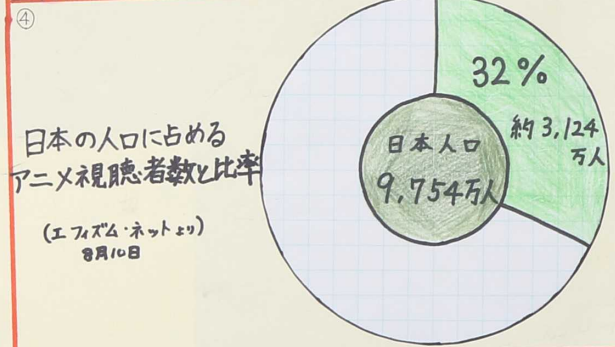 ④
日本の人口に占める
アニメ視聴者数と比率
(エフィズム・ネットより)
8月10日
32%
約3,124
万人
日本人口
9,754万人